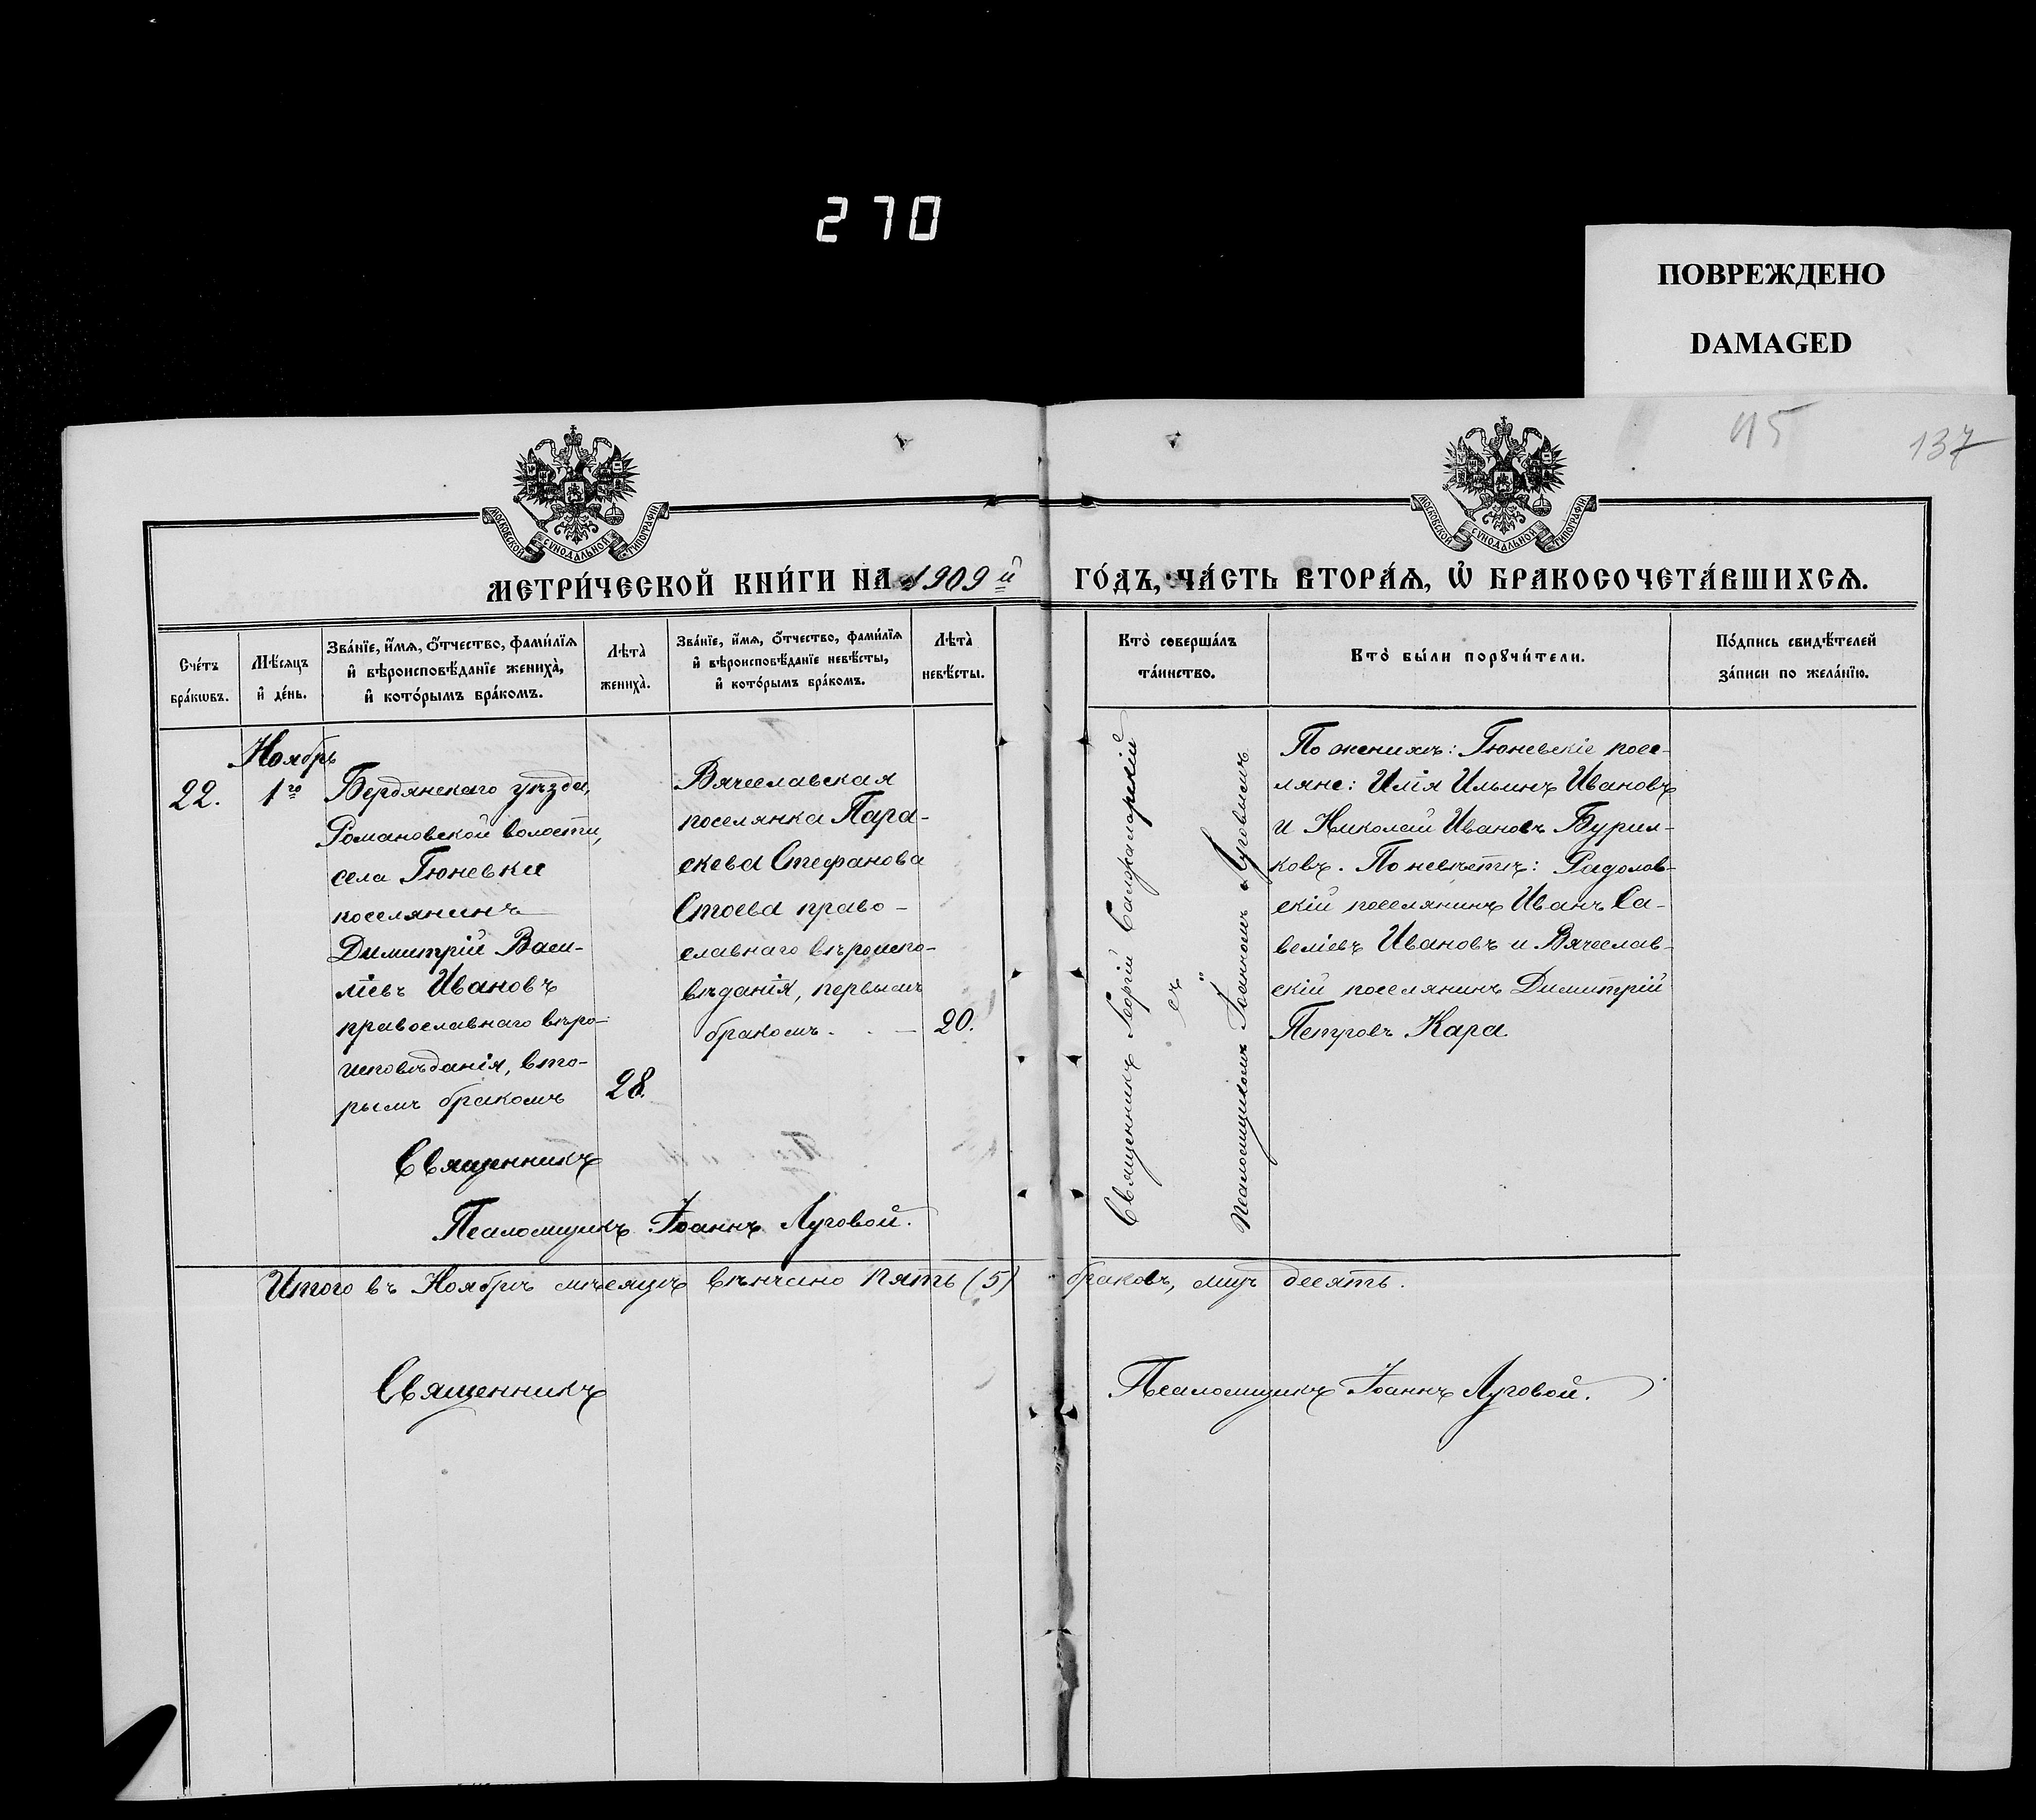 270
ПОВРЕЖДЕНО
DAMAGED
115
137
МОСКОВСКОЙ СѴНОДАЛЬНОЙ ТИПОГРАФІИ
МОСКОВСКОЙ СѴНОДАЛЬНОЙ ТИПОГРАФІИ
МЕТРИ́ЧЕСКОЙ КНИ́ГИ НА 1909й ГО́ДЪ, ЧА́СТЬ ВТОРА́Ѧ, Ѽ БРАКОСОЧЕТА́ВШИХСѦ.
Сче́тъ
бра́кѡвъ.
Мѣ́сяцъ
и де́нь.
Зва́нїе, и́мя, о́тчество, фами́лїя
и вѣроисповѣ́данїе жениха̀,
и кото́рымъ бра́комъ.
Лѣта̀
жениха̀.
Зва́нїе, и́мя, о́тчество, фами́лїя
и вѣроисповѣ́данїе невѣ́сты,
и кото́рымъ бра́комъ.
Лѣта̀
невѣ́сты.
Кто̀ соверша́лъ
та́инство.
Кто̀ бы́ли порꙋчи́тели.
По́дпись свидѣ́телей
за́писи по жела́нїю.
22.
Ноябрь
1го
Бердянскаго уѣзда,
Романовской волости,
села Гюневки
поселянинъ
Димитрій Васи-
ліевъ Ивановъ
православнаго вѣро-
исповѣданія, вто-
рымъ бракомъ
28.
Вячеславская
поселянка Пара-
скева Стефанова
Стоева право-
славнаго вѣроиспо-
вѣданія, первымъ
бракомъ.
20.
Священникъ Георгій
съ
Псаломщикомъ Іоанномъ Луговымъ
По женихѣ: Гюневскіе посе-
ляне: Илія Ильинъ Ивановъ
и Николай Ивановъ Бурил-
ковъ. По невѣстѣ: Радолов-
скій поселянинъ Иванъ Са-
веліевъ Ивановъ и Вячеслав-
скій поселянинъ Димитрій
Петровъ Кара
Священникъ
Псаломщикъ Іоаннъ Луговой.
Итого въ Ноябрѣ мѣсяцѣ вѣнчано пять (5) браковъ, лицъ десять.
Священникъ
Псаломщикъ Іоаннъ Луговой.